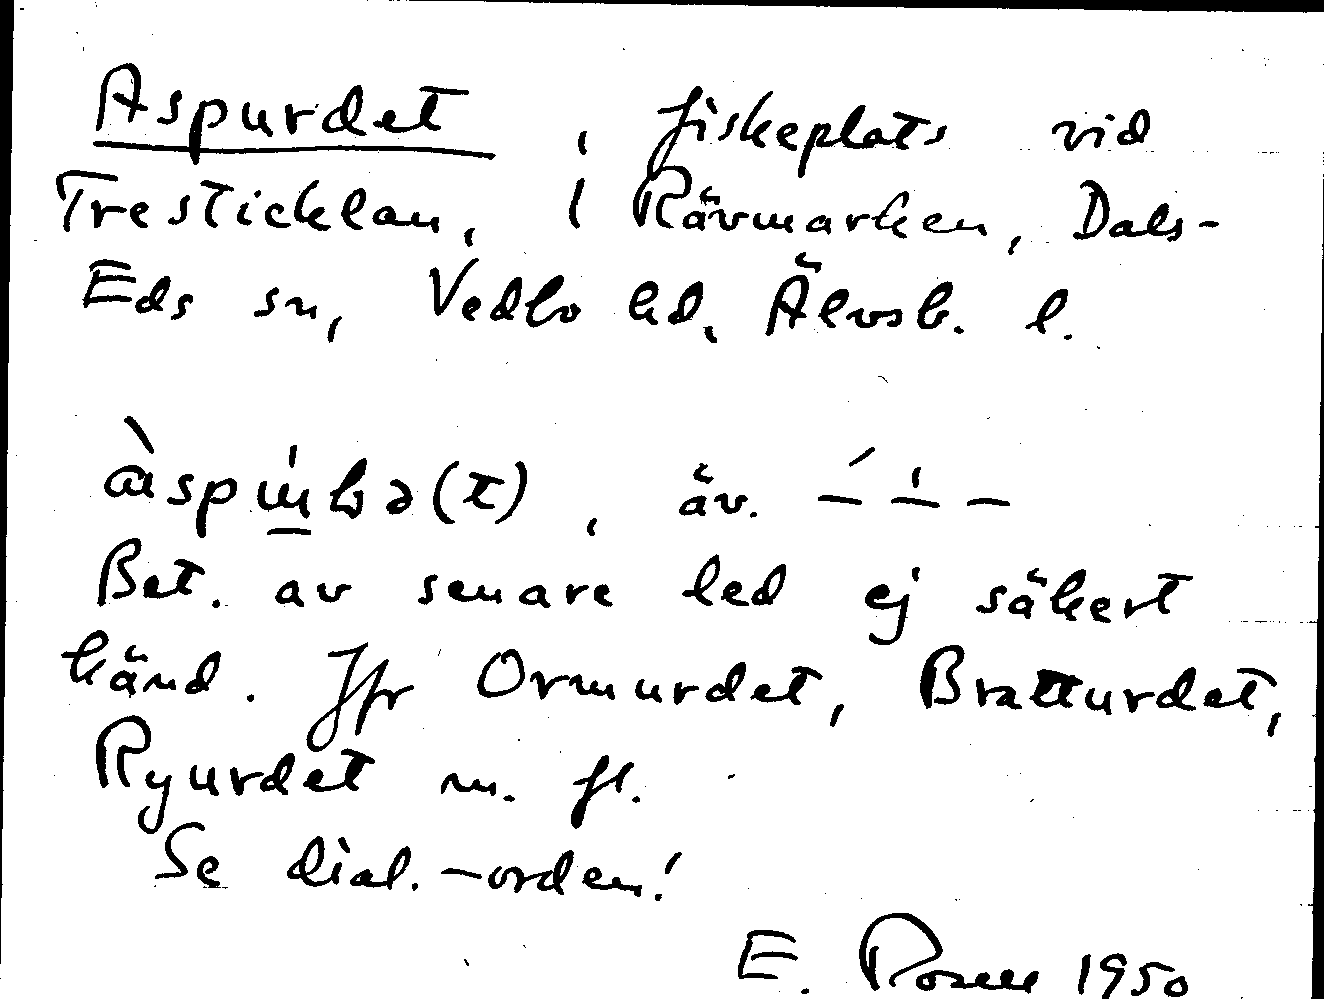 Aspurdet, fiskeplats vid
Tresticklan, i Rävmarken, Dals-
Eds sn, Vedbo hd, Älvsb. l.
äv. — — —
Bet. av senare led ej säkert
känd. Jfr Ormurdet, Bratturdet,
Ryurdet m. fl.
Se dial.-orden!
E. Rosell 1950